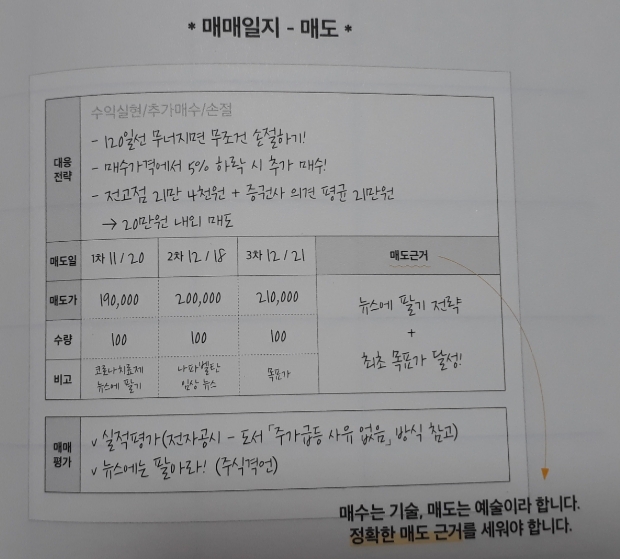 * 매매일지 - 매도 *
대응
전략
수익실현/추가매수/손절
- 120일선 무너지면 무조건 손절하기!
- 매수가격에서 5% 하락 시 추가 매수!
- 전고점 21만 4천원 + 증권사 의견 평균 21만원
→ 20만원 내외 매도
매도일 1차 11/20 2차 12/18 3차 12/21 매도근거
매도가 190,000 200,000 210,000
수량 100 100 100
비고 코로나치료제 뉴스에 팔기 나파벨탄 임상 뉴스 목표가
뉴스에 팔기 전략
+
최초 목표가 달성!
매매
평가
v 실적평가(전자공시 - 도서「주가급등 사유 없음」방식 참고)
v 뉴스에는 팔아라! (주식격언)
매수는 기술, 매도는 예술이라 합니다.
정확한 매도 근거를 세워야 합니다.